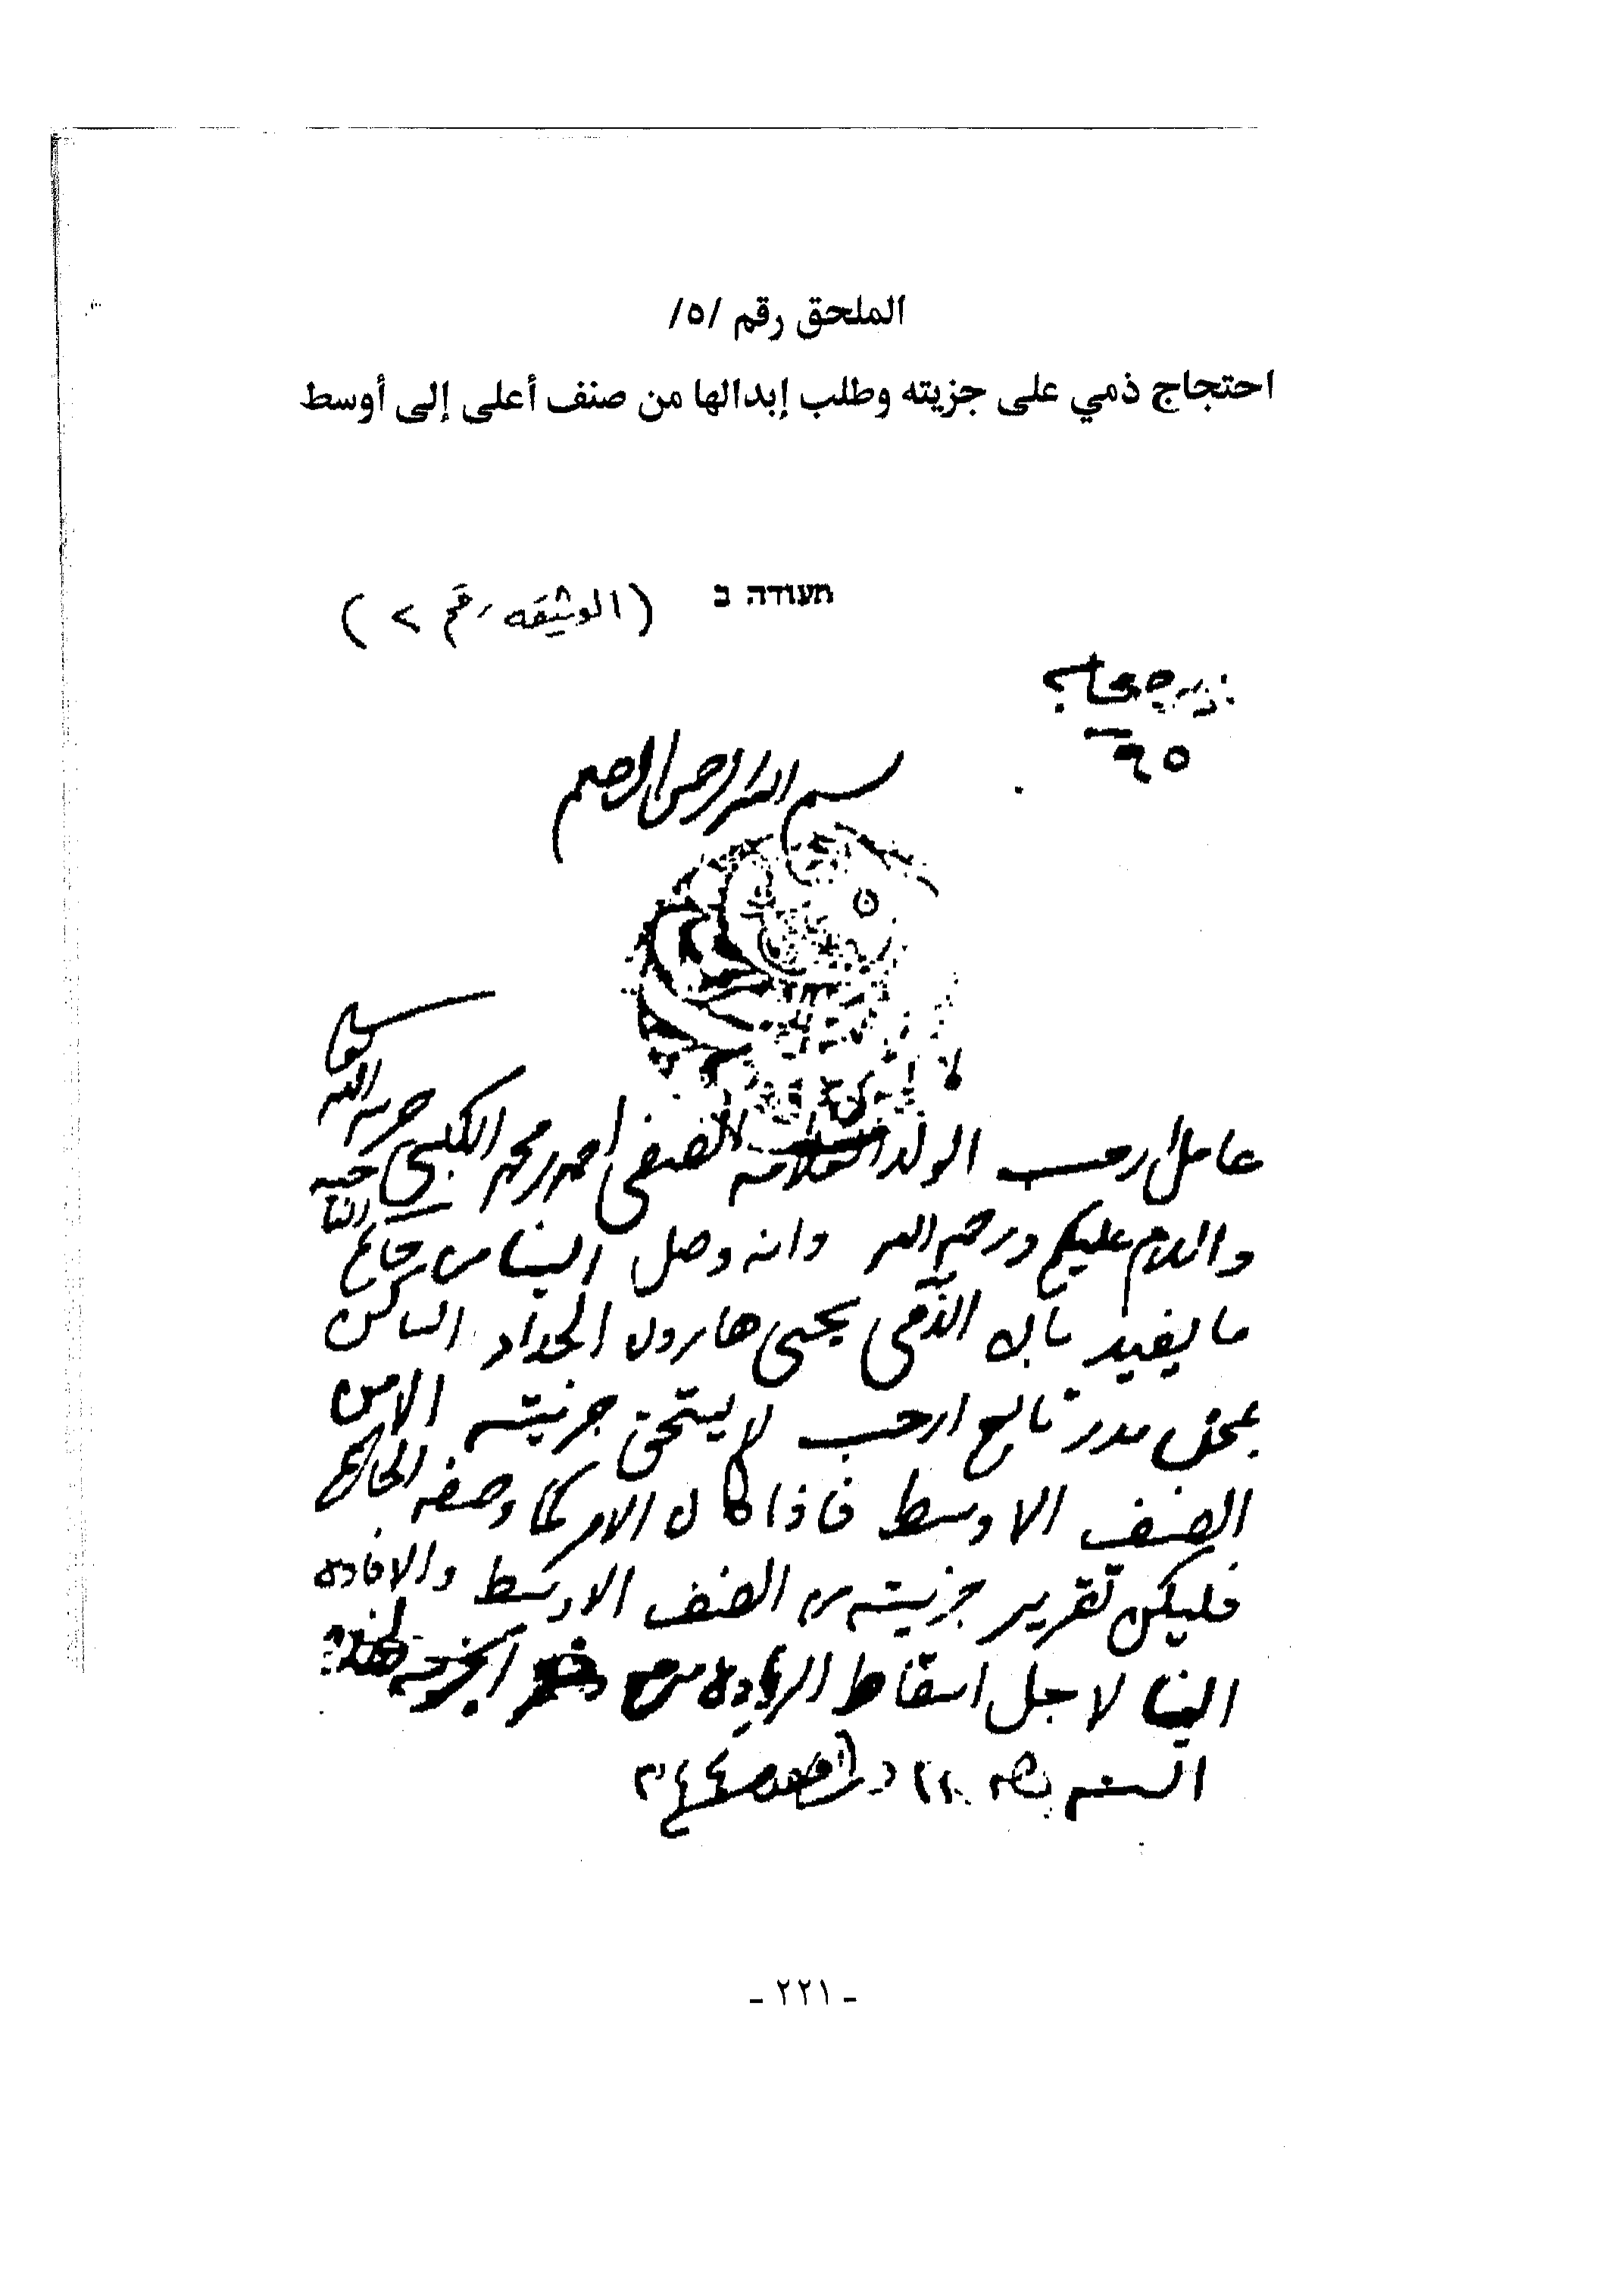 الملحق رقم /٥/
احتجاج ذمي على جزيته وطلب إبدالها من صنف أعلى إلى أوسط
תעודה ב (الوثيقه رقم ٢)
٦٥
بسم الله الرحمن الرحيم
عامل ارحب الولد العلامه الصفي احمد بن محمد الكبسي حرسه الله
والسلام عليكم ورحمة الله وانه وصل الينا من حاكم
ما يفيد بان الذمي يحيى هارون الحداد الساكن
مدر تابع ارحب لا يستحق جزيته الا من
الصنف الاوسط فاذا كان الامر كما وصفه الحاكم
فليكن تقرير جزيته من الصنف الاوسط والافاده
الينا لاجل اسقاط الزياده من دفتر الجزيه لهذه
السنه
- ٢٢١ -